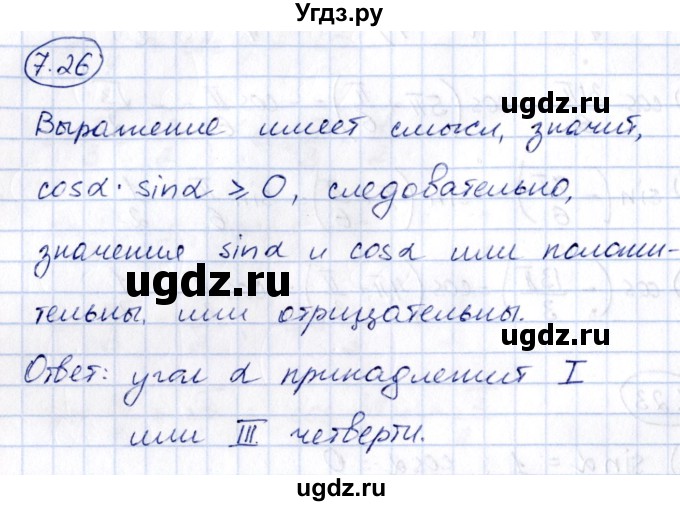 Угдз.ру
7.26
ugdz.ru
Выражение имеет смысл, значит,
cosα · sinα ≥ 0, следовательно,
значения sinα и cosα или положи-
ugdz.ru
тельны, или отрицательны.
ugdz.ru
Ответ: угол α принадлежит I
или III четверти.
ugdz.ru
ugdz.ru